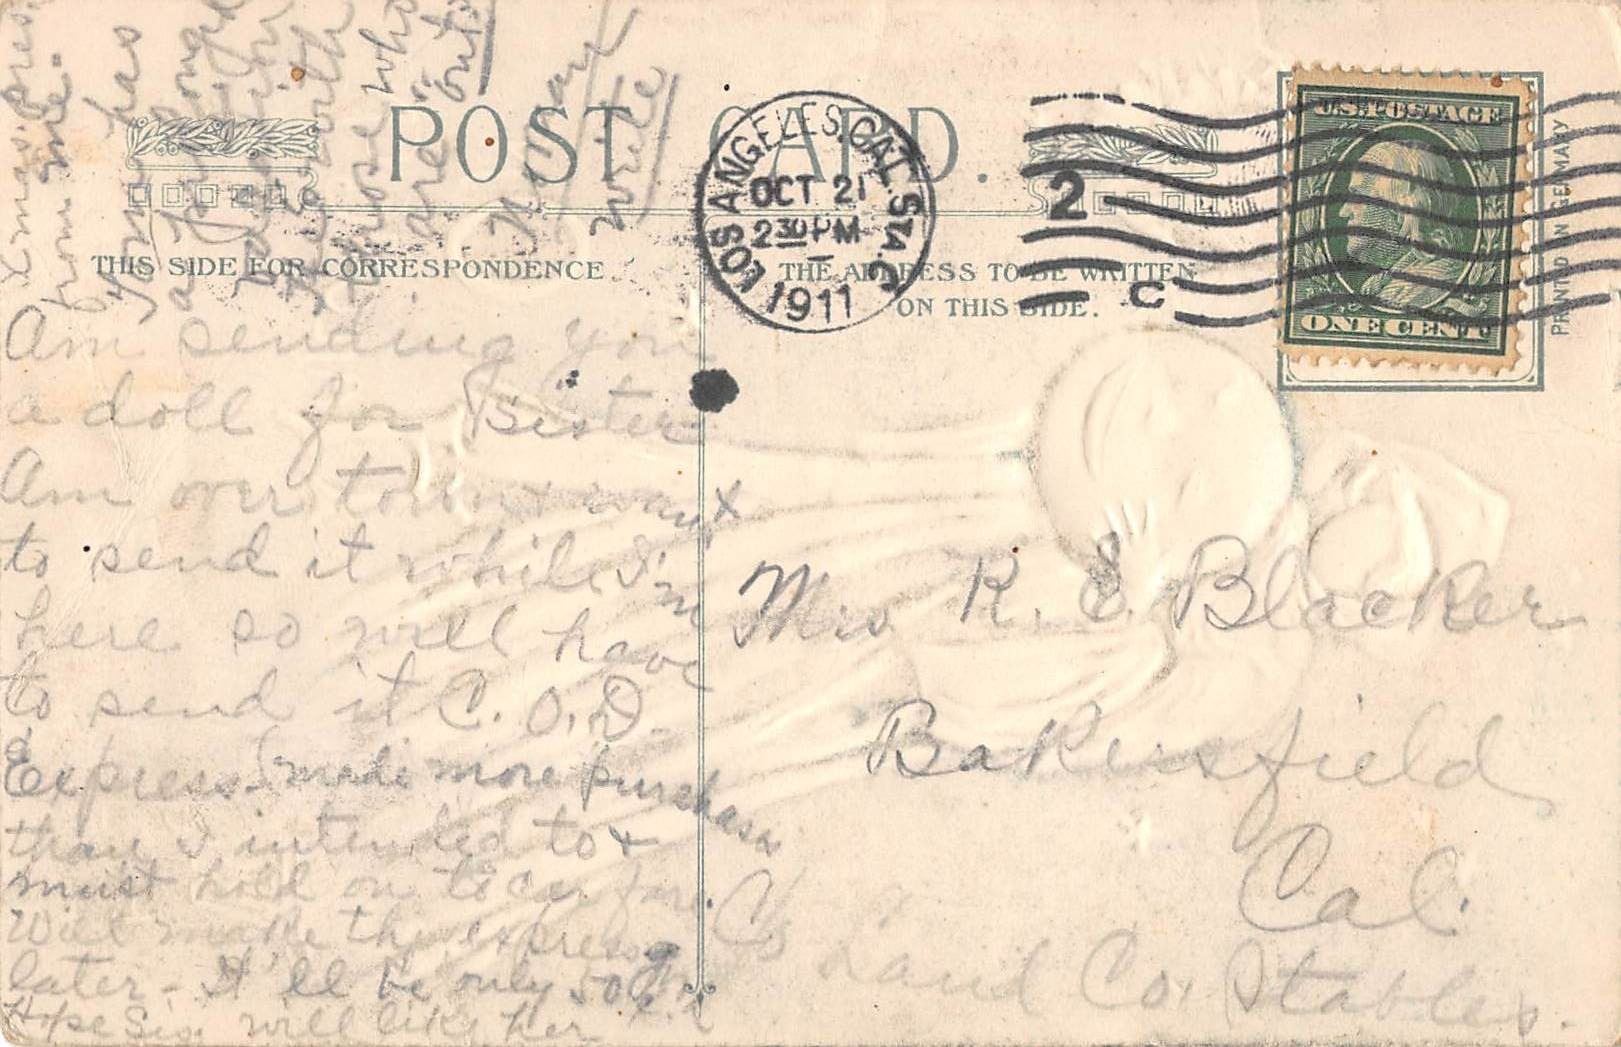 POST CARD.
THIS SIDE FOR CORRESPONDENCE
THE ADDRESS TO BE WRITTEN
ON THIS SIDE.
LOS ANGELES, CAL. STA. C
OCT 21
2 30 PM
1911
2
C
U.S. POSTAGE
ONE CENT
PRINTED IN GERMANY
Am sending you
a doll for Sister
Am over town & want
to send it while I'm
here so will have
to send it C.O.D.
Express. I made more purchases
than I intended to &
must hold on to car fare.
Will make the express
later - It'll be only 50
Hope Sis. will like her
Xmas pres.
from me.
has
those who
are out
write
Mrs R. E. Blacker
Bakersfield
Cal.
Land Co. Stables.